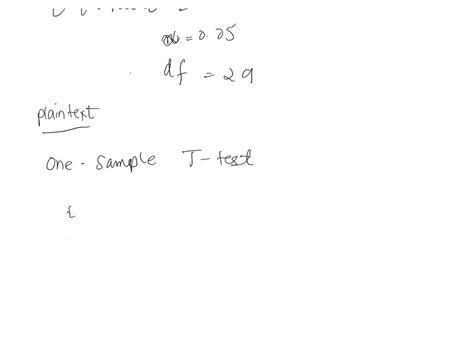 α = 0.05
df = 29
plaintext
One - sample T - test
t